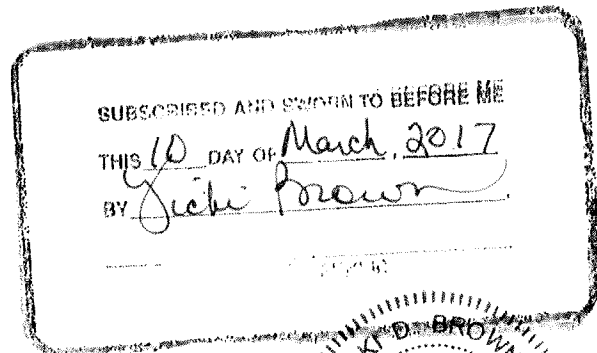 SUBSCRIBED AND SWORN TO BEFORE ME
THIS 10 DAY OF March, 2017
BY Vicki Brown.
KI D. BROWN